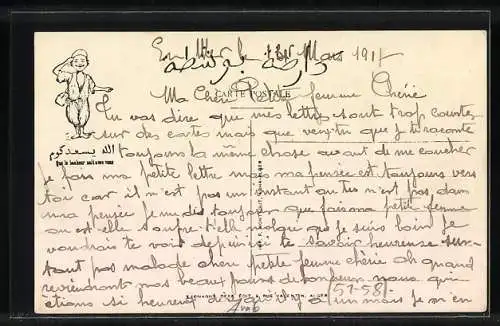 Mars 191
CARTE POSTALE
الله يسعدكم
Ma Chérie Petite femme Chérie
Tu vas dire que mes lettres sont trop courtes
sur des cartes mais que veux-tu que je raconte
toujours la même chose avant de me coucher
Je fais ma petite lettre mais ma pensée est toujours vers
toi car il n'est pas un instant ou tu n'est pas dans
ma pensée je me dis toujours que fais ma petite femme
ou est-elle souffre-t-elle malgré que je suis loin je
voudrais te voir te savoir heureuse sur-
tout pas malade chère petite femme chérie Ah quand
reviendront nos beaux jours de bonheur nous qui
étions si heureux
51-58
Arab